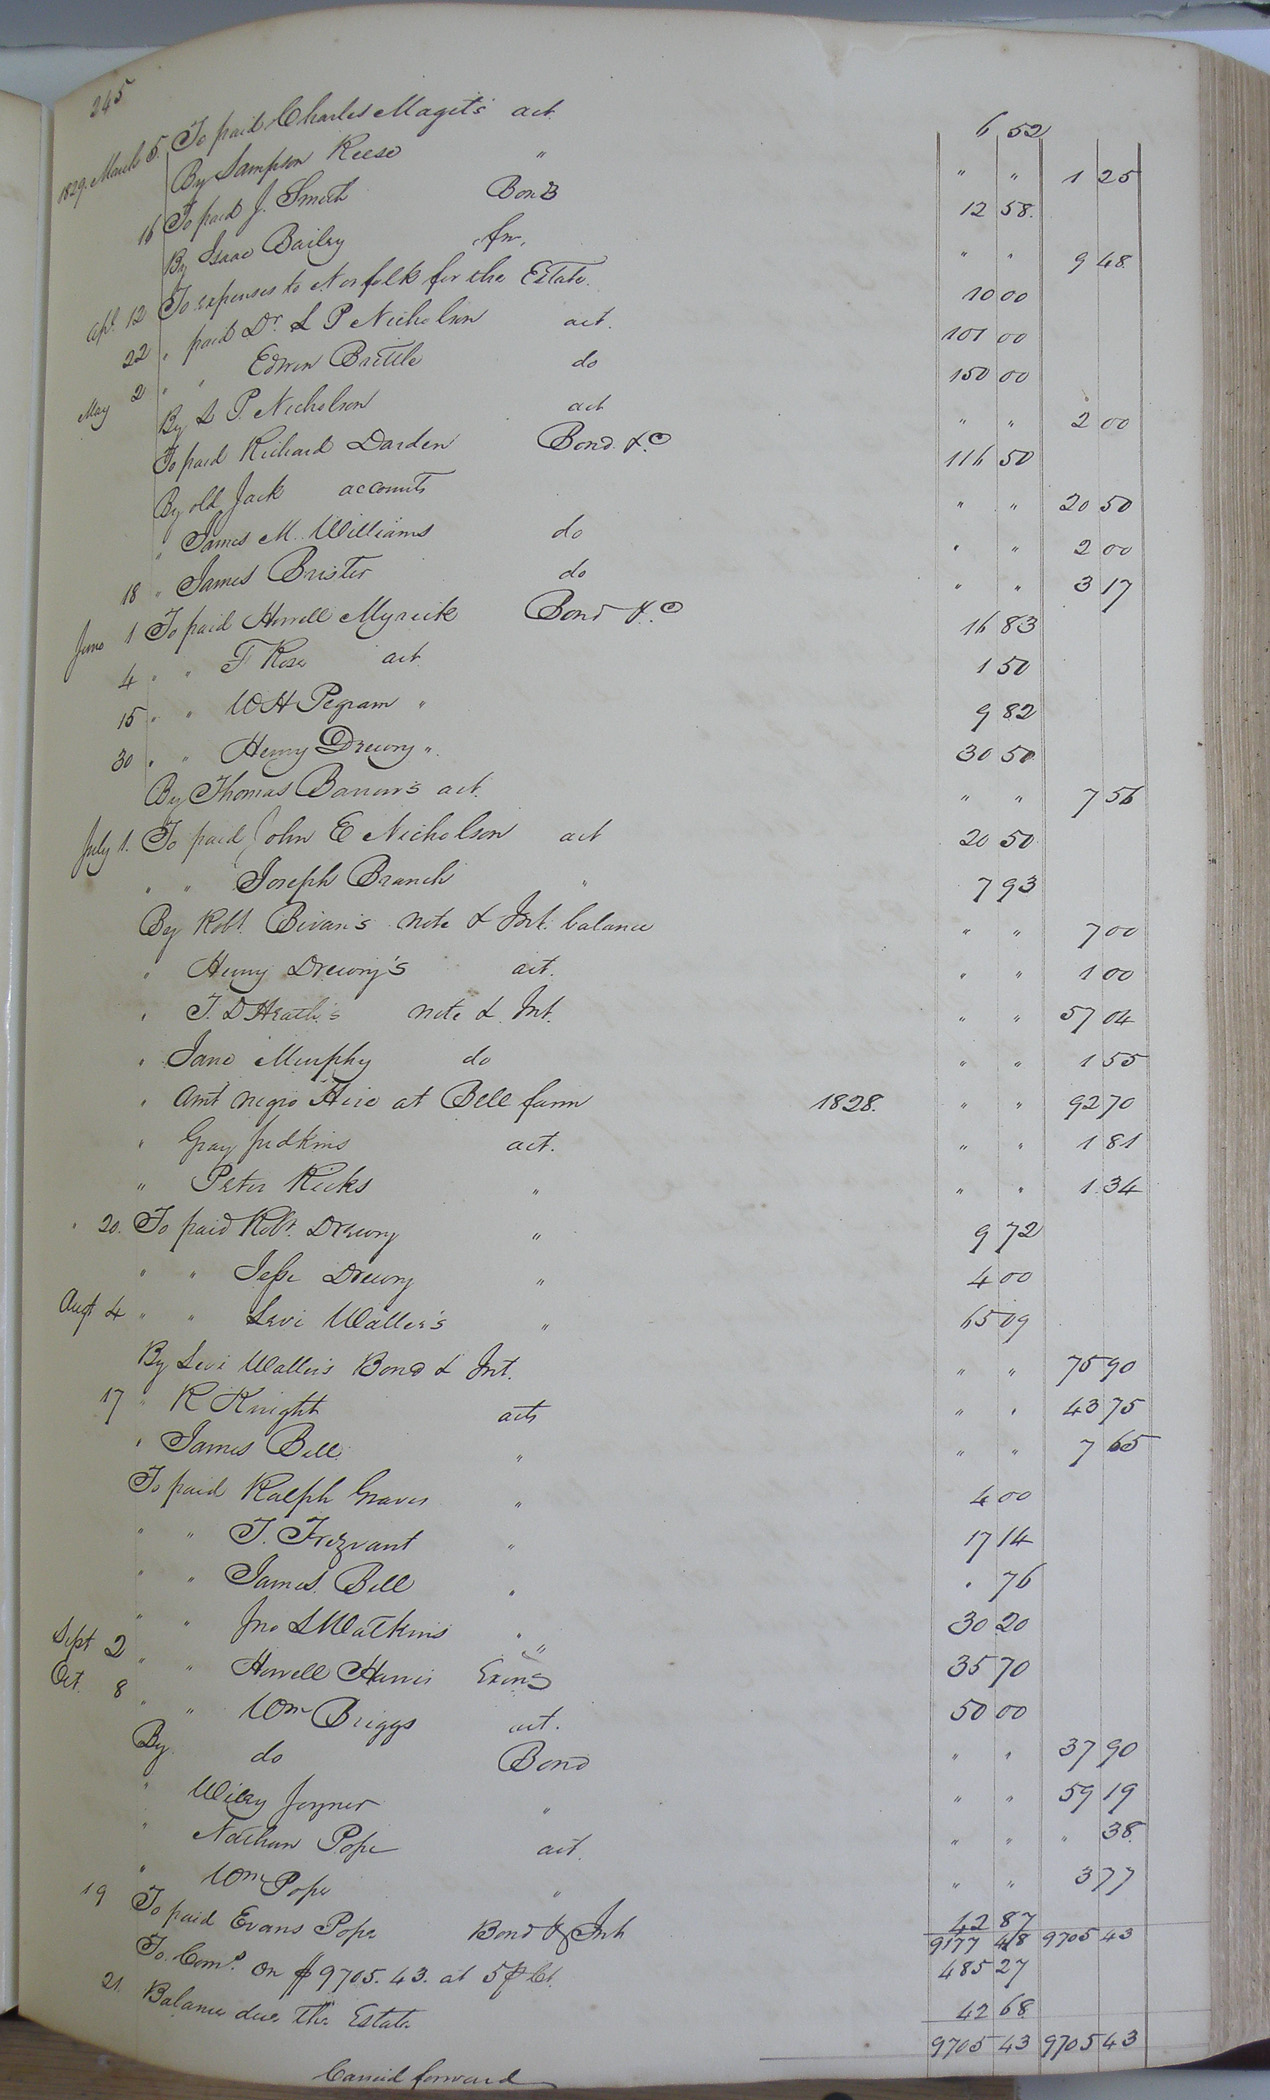 245
1829. March 5. To paid Charles Maget's act. 6 52
By Sampson Reese " " " 1 25
16 To paid J. Smith Bond 12 58.
By Isaac Bailey fm. " " 9 48
Apl. 12 To expenses to Norfolk for the Estate. 10 00
22 " paid Dr. L P Nicholson act. 101 00
May 2 " " Edwin Brittle do 150 00
By L P. Nicholson act " " 2 00
To paid Richard Darden Bond &c 116 50
By old Jack accounts " " 20 50
" James M. Williams do " " 2 00
18 " James Brister do " " 3 17
June 1 To paid Howell Myrick Bond &c 16 83
4 " " F Rose act. 1 50
15 " " W H Pegram " 9 82
30 " " Henry Drewry " 30 50
By Thomas Barrow's act. " " 7 56
July 1. To paid John E Nicholson act 20 50
" " Joseph Branch " 7 93
By Robt. Bivan's note & Int. balance " " 7 00
" Henry Drewry's act. " " 1 00
" T. D Heath's note & Int. " " 57 04
" Jane Murphy do " " 1 55
" Amt negro Hire at Bell farm 1828. " " 92 70
" Gray Judkins act. " " 1 81
" Peter Ricks " " " 1 34
" 20. To paid Robt. Drewry " 9 72
" " Jesse Drewry " 4 00
Augt 4 " " Levi Waller's " 65 09
By Levi Waller's Bond & Int. " " 75 90
17 " R Knight acts " " 43 75
" James Bell " " " 7 65
To paid Ralph Graves " 4 00
" " T. Trezvant " 17 14
" " James Bell " " 76
" " Jno L Watkins " 30 20
Sept 2 " " Howell Harris Exors " 35 70
Oct. 8 " " Wm Briggs act. 50 00
By do Bond " " 37 90
" Wiley Joyner " " " 59 19
" Nathan Pope act. " " " 38
" Wm Pope " " " 3 77
19 To paid Evans Pope Bond & Int 42 87
9177 48 9705 43
To Coms. on $9705.43. at 5 p Ct. 485 27
21. Balance due the Estate 42 68
9705 43 9705 43
Carried forward